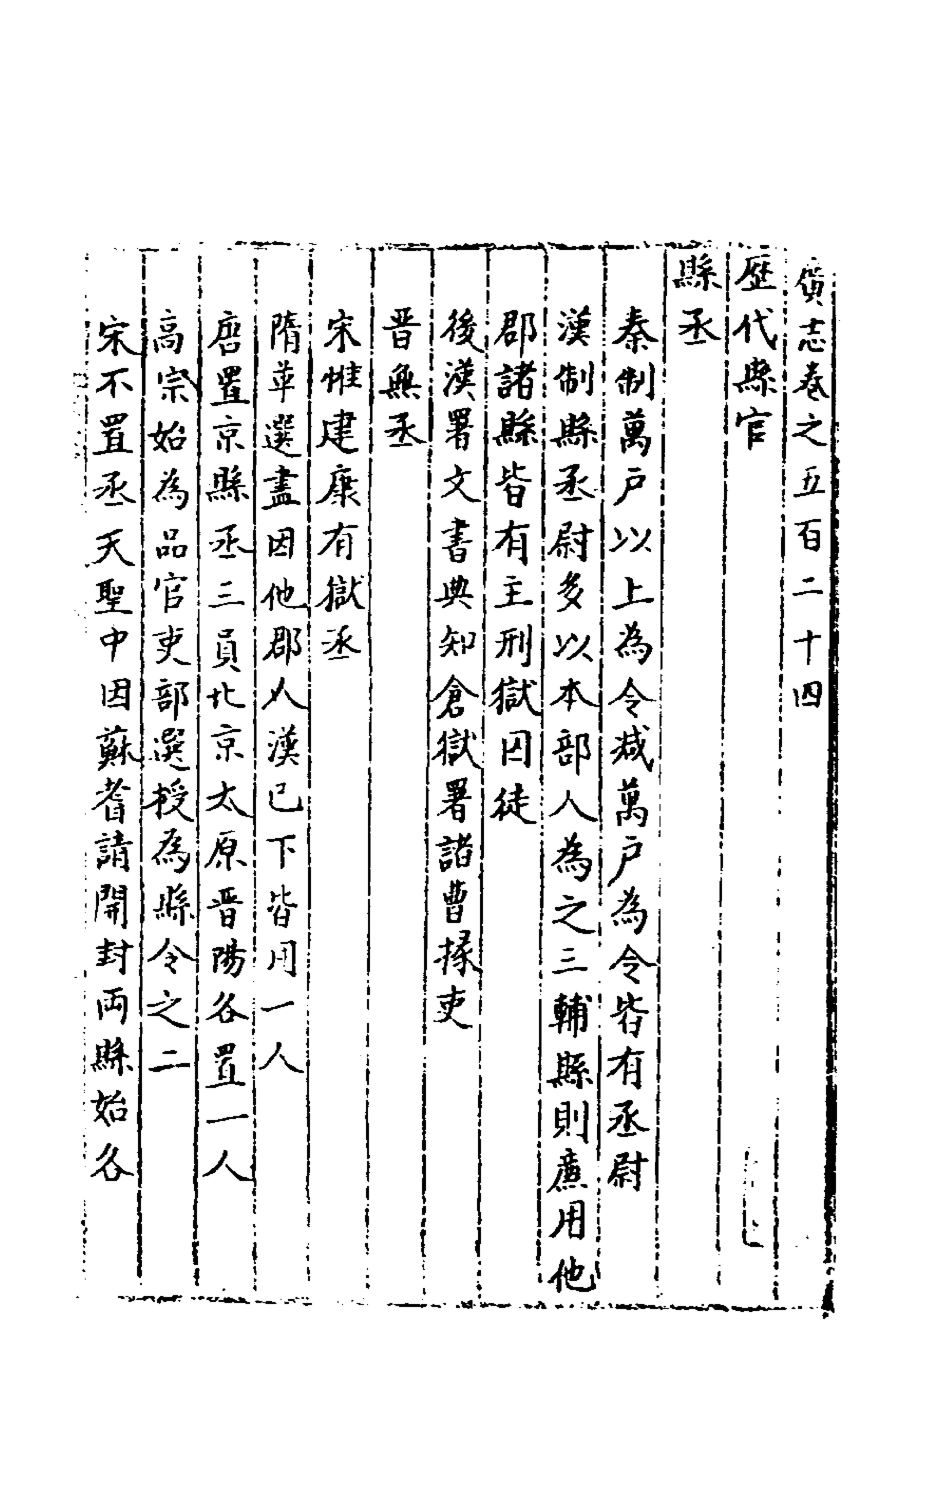 廣志卷之五百二十四
歷代縣官
縣丞
秦制萬戶以上為令減萬戶為令皆有丞尉
漢制縣丞尉多以本部人為之三輔縣則廣用他
郡諸縣皆有主刑獄囚徒
後漢署文書典知倉獄署諸曹掾吏
晋無丞
宋惟建康有獄丞
隋革選盡因他郡人漢已下皆用一人
唐置京縣丞三員北京太原晋陽各置一人
高宗始為品官吏部選授為縣令之二
宋不置丞天聖中因蘇耆請開封両縣始各